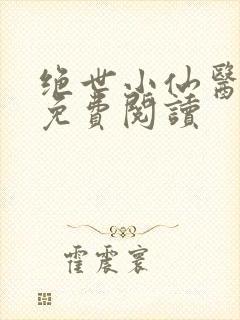 绝世小仙醫
免費閱讀
霍震寰